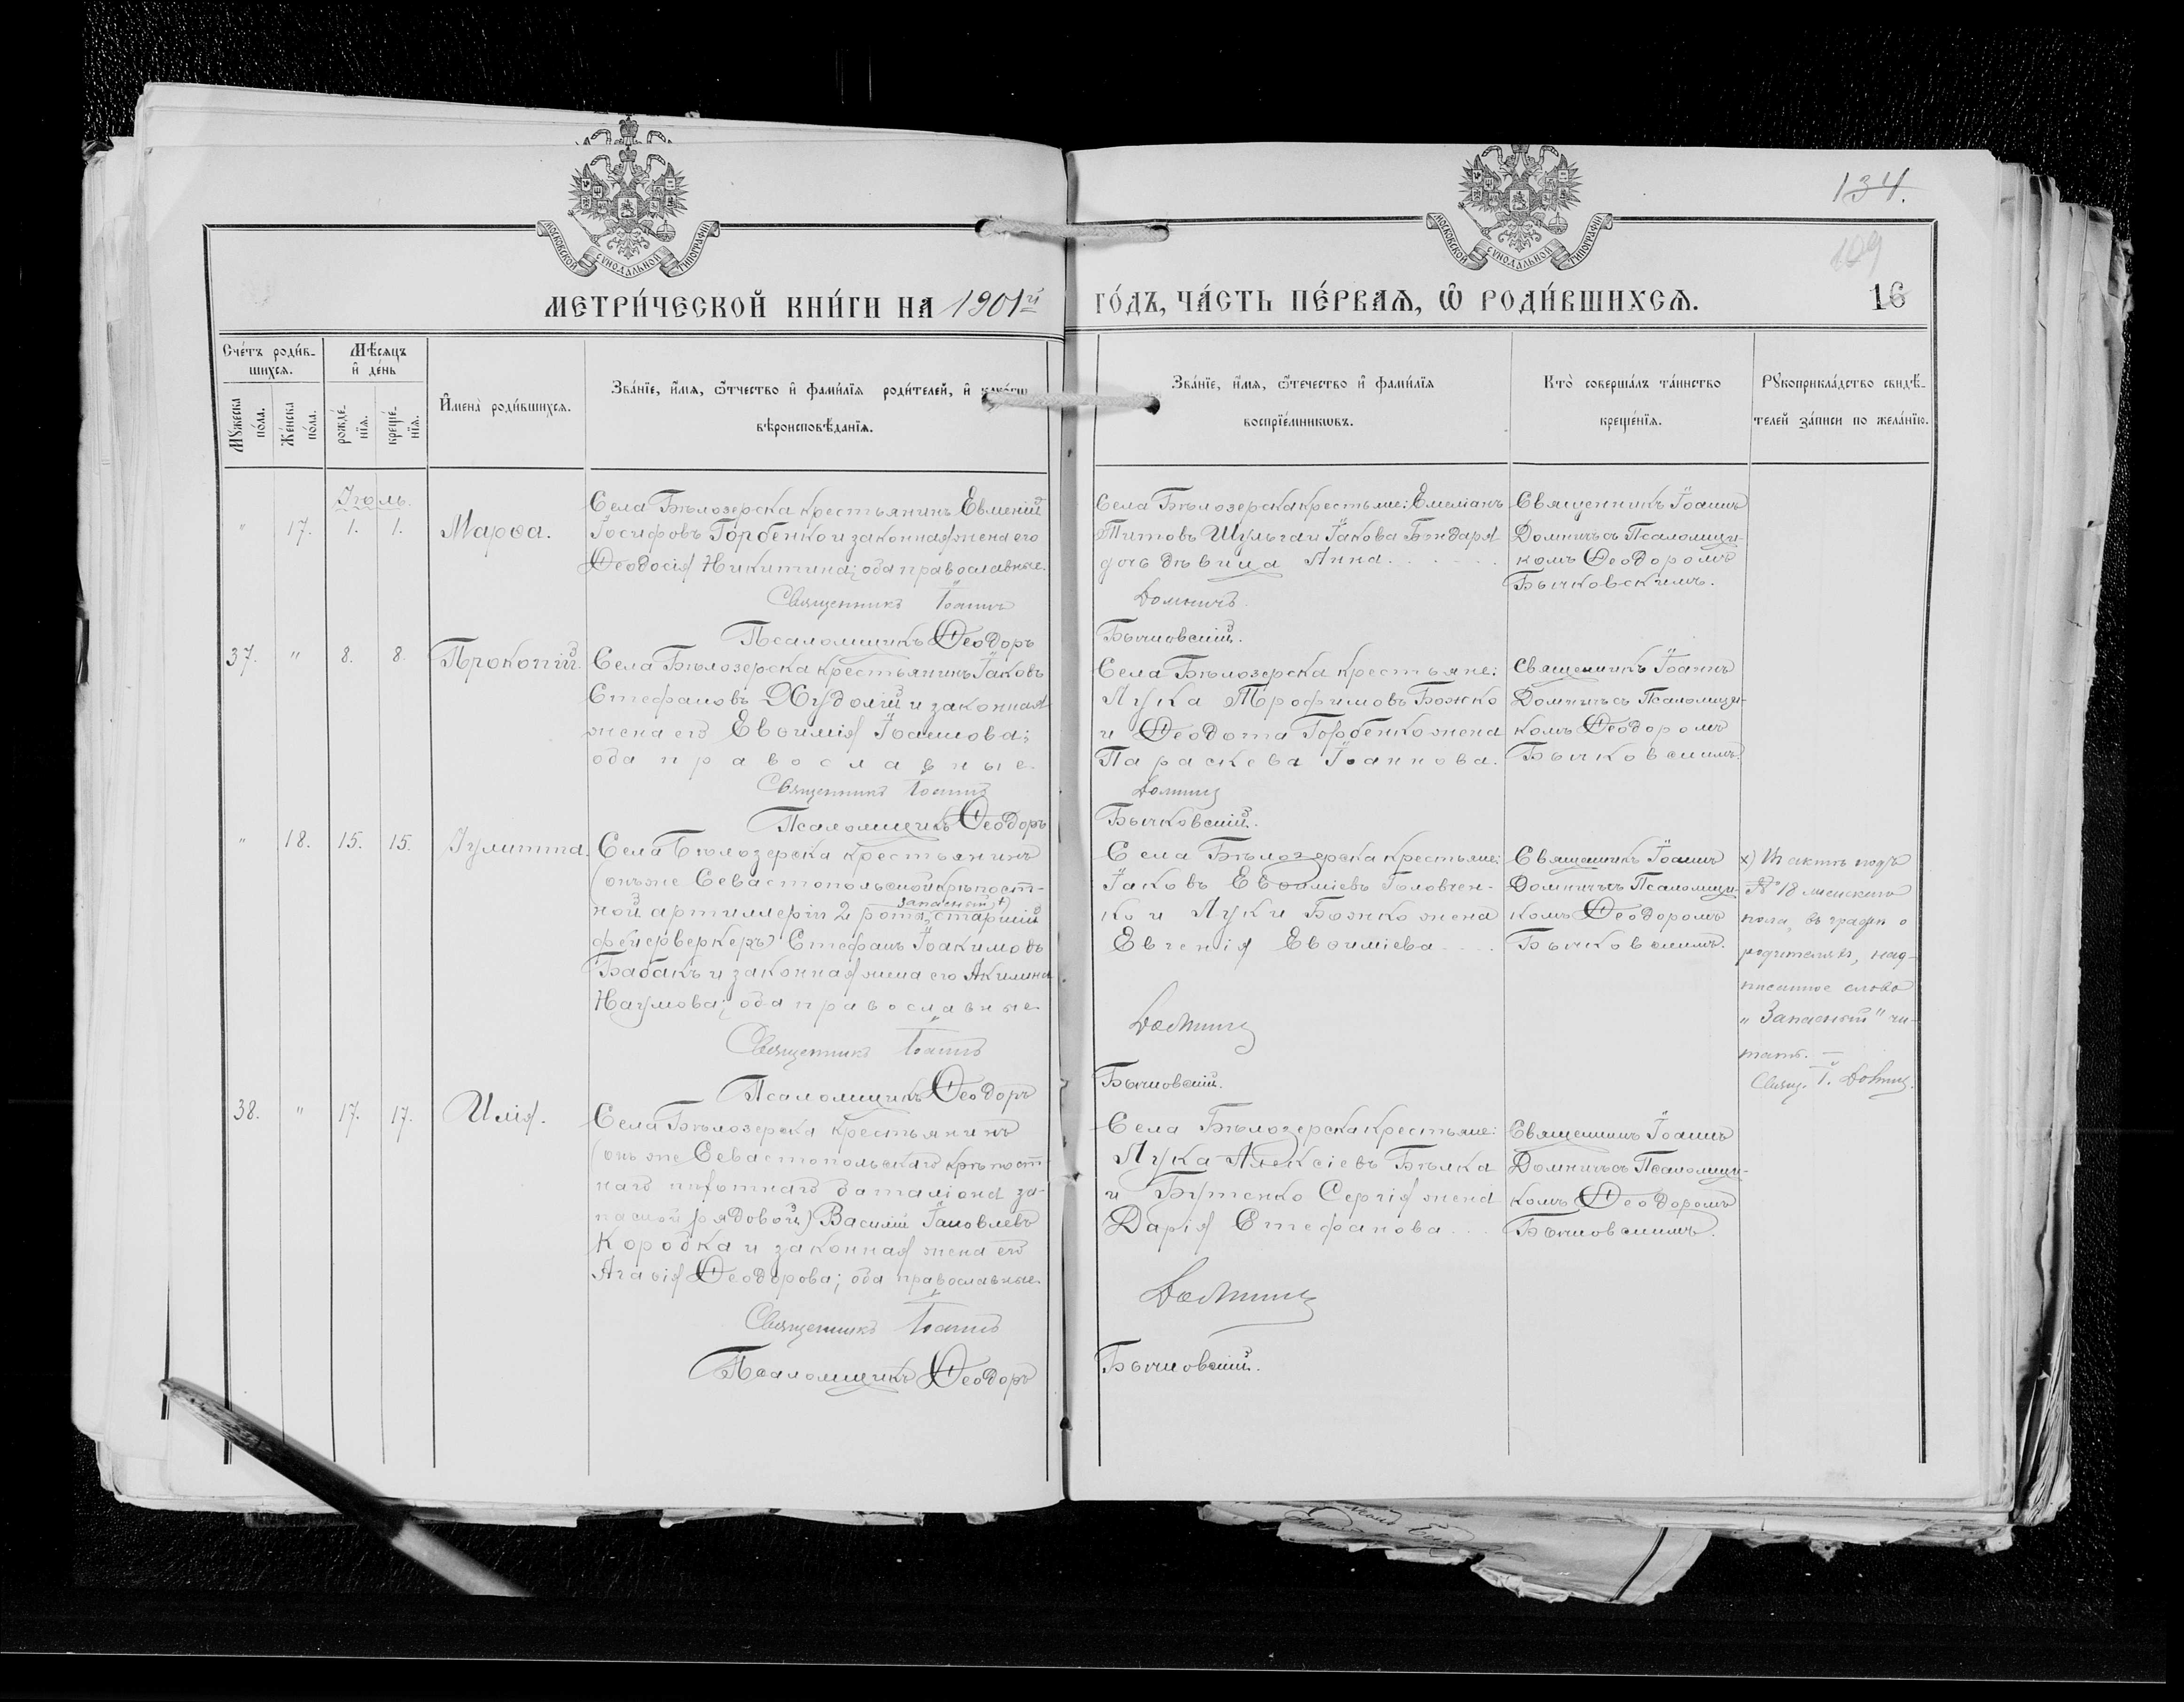 134.
109
16
МОСКОВСКОЙ СѴНОДАЛЬНОЙ ТИПОГРАФІИ
МОСКОВСКОЙ СѴНОДАЛЬНОЙ ТИПОГРАФІИ
МЕТРИ́ЧЕСКОЙ КНИ́ГИ НА 1901й
ГО́ДЪ, ЧА́СТЬ ПЕ́РВАЯ, Ѡ РОДИ́ВШИХСЯ.
Сче́тъ роди́в-
шихся.
Мѣ́сяцъ
и҆ де́нь
Мꙋ́жеска
по́ла.
Же́нска
по́ла.
рожде́-
нїя.
креще́-
нїя.
И҆мена̀ роди́вшихся.
Зва́нїе, и҆́мя, ѻ҆́тчество и҆ фами́лїя роди́телей, и҆
вѣроисповѣ́данїя.
Зва́нїе, и҆́мя, ѻ҆́течество и҆ фами́лїя
воспрїе́мниковъ.
Кто̀ соверша́лъ та́инство
креще́нїя.
Рꙋкоприкла́дство свидѣ́-
телей за́писи по жела́нїю.
Іюль.
" 17. 1. 1. Марѳа.
Села Бѣлозерска крестьянинъ Евменій
Іосифовъ Горбенко и законная жена его
Ѳеодосія Никитина; оба православные.
Священникъ Іоаннъ
Псаломщикъ Ѳеодоръ
Села Бѣлозерска крестьяне: Емеліанъ
Титовъ Шульга и Іакова Бондаря
дочь дѣвица Анна.
Домничъ.
Бычковскій.
Священникъ Іоаннъ
Домничъ съ Псаломщи-
комъ Ѳеодоромъ
Бычковскимъ.
37. " 8. 8. Прокопій.
Села Бѣлозерска крестьянинъ Іаковъ
Стефановъ Худолій и законная
жена его Евѳимія Іоаннова;
оба православные.
Священникъ Іоаннъ
Псаломщикъ Ѳеодоръ
Села Бѣлозерска крестьяне:
Лука Трофимовъ Божко
и Ѳеодота Горбенко жена
Параскева Іоаннова.
Домничъ
Бычковскій.
Священникъ Іоаннъ
Домничъ съ Псаломщи-
комъ Ѳеодоромъ
Бычковскимъ.
" 18. 15. 15. Іулитта.
Села Бѣлозерска крестьянинъ
(онъ же Севастопольской крѣпост-
запасный x)
ной артиллеріи 2 роты, старшій
фейерверкеръ) Стефанъ Іоакимовъ
Бабакъ и законная жена его Акилина
Наумова; оба православные.
Священникъ Іоаннъ
Псаломщикъ Ѳеодоръ
Села Бѣлозерска крестьяне:
Іаковъ Евѳиміевъ Головчен-
ко и Луки Божко жена
Евгенія Евѳиміева
Домничъ
Бычковскій.
Священникъ Іоаннъ
Домничъ съ Псаломщи-
комъ Ѳеодоромъ
Бычковскимъ.
x) Въ актѣ подъ
№ 18 женскаго
пола, въ графѣ о
родителяхъ, над-
писанное слово
„Запасный" чи-
тать. —
Свящ. І. Домничъ.
38. " 17. 17. Илія.
Села Бѣлозерска крестьянинъ
(онъ же Севастопольскаго крѣпост-
наго пѣхотнаго баталіона за-
пасной рядовой) Василій Іаковлевъ
Коробка и законная жена его
Агаѳія Ѳеодорова; оба православные.
Священникъ Іоаннъ
Псаломщикъ Ѳеодоръ
Села Бѣлозерска крестьяне:
Лука Алексіевъ Бѣлка
и Бутенко Сергія жена
Дарія Стефанова
Домничъ
Бычковскій.
Священникъ Іоаннъ
Домничъ съ Псаломщи-
комъ Ѳеодоромъ
Бычковскимъ.